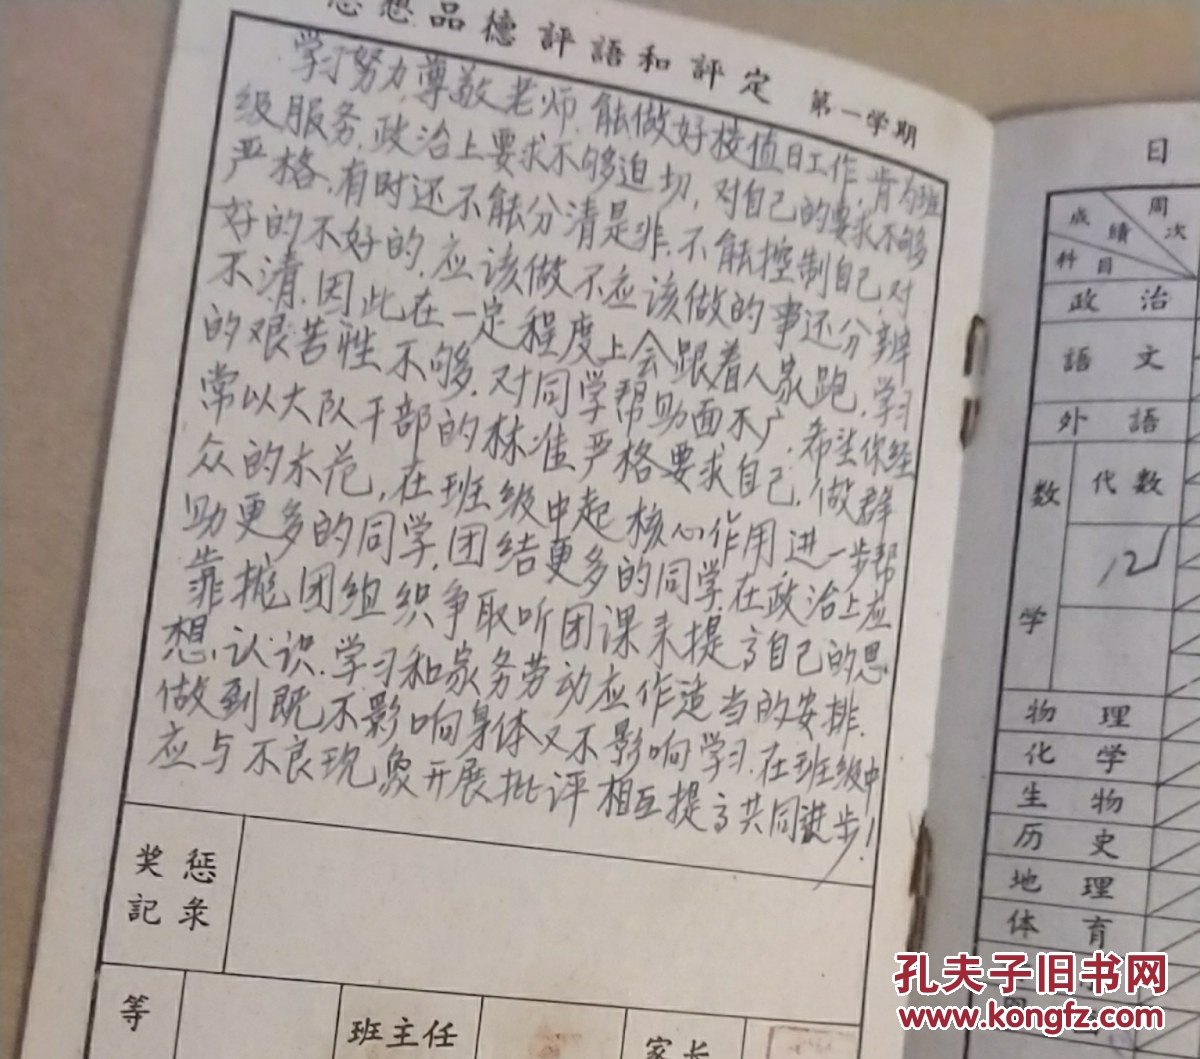 思想品德評語和評定 第一学期
学习努力,尊敬老师.能做好接值日工作,肯为班
级服务.政治上要求不够迫切,对自己的要求不够
严格,有时还不能分清是非.不能控制自己,对
好的不好的,应该做不应该做的事还分辨
不清.因此在一定程度上会跟着人家跑,学习
的艰苦性不够.对同学帮助面不广.希望你经
常以大队干部的标准严格要求自己,做群
众的木范,在班级中起核心作用进一步帮
助更多的同学,团结更多的同学,在政治上应
靠拢团组织争取听团课来提高自己的思
想认识.学习和家务劳动应作适当的安排.
做到既不影响身体又不影响学习.在班级中
应与不良现象开展批评相互提高共同进步!
奖惩
記录
等
班主任
家长
日
成績
周次
科目
政治
語文
外語
数学
代数
物理
化学
生物
历史
地理
体育
孔夫子旧书网
www.kongfz.com